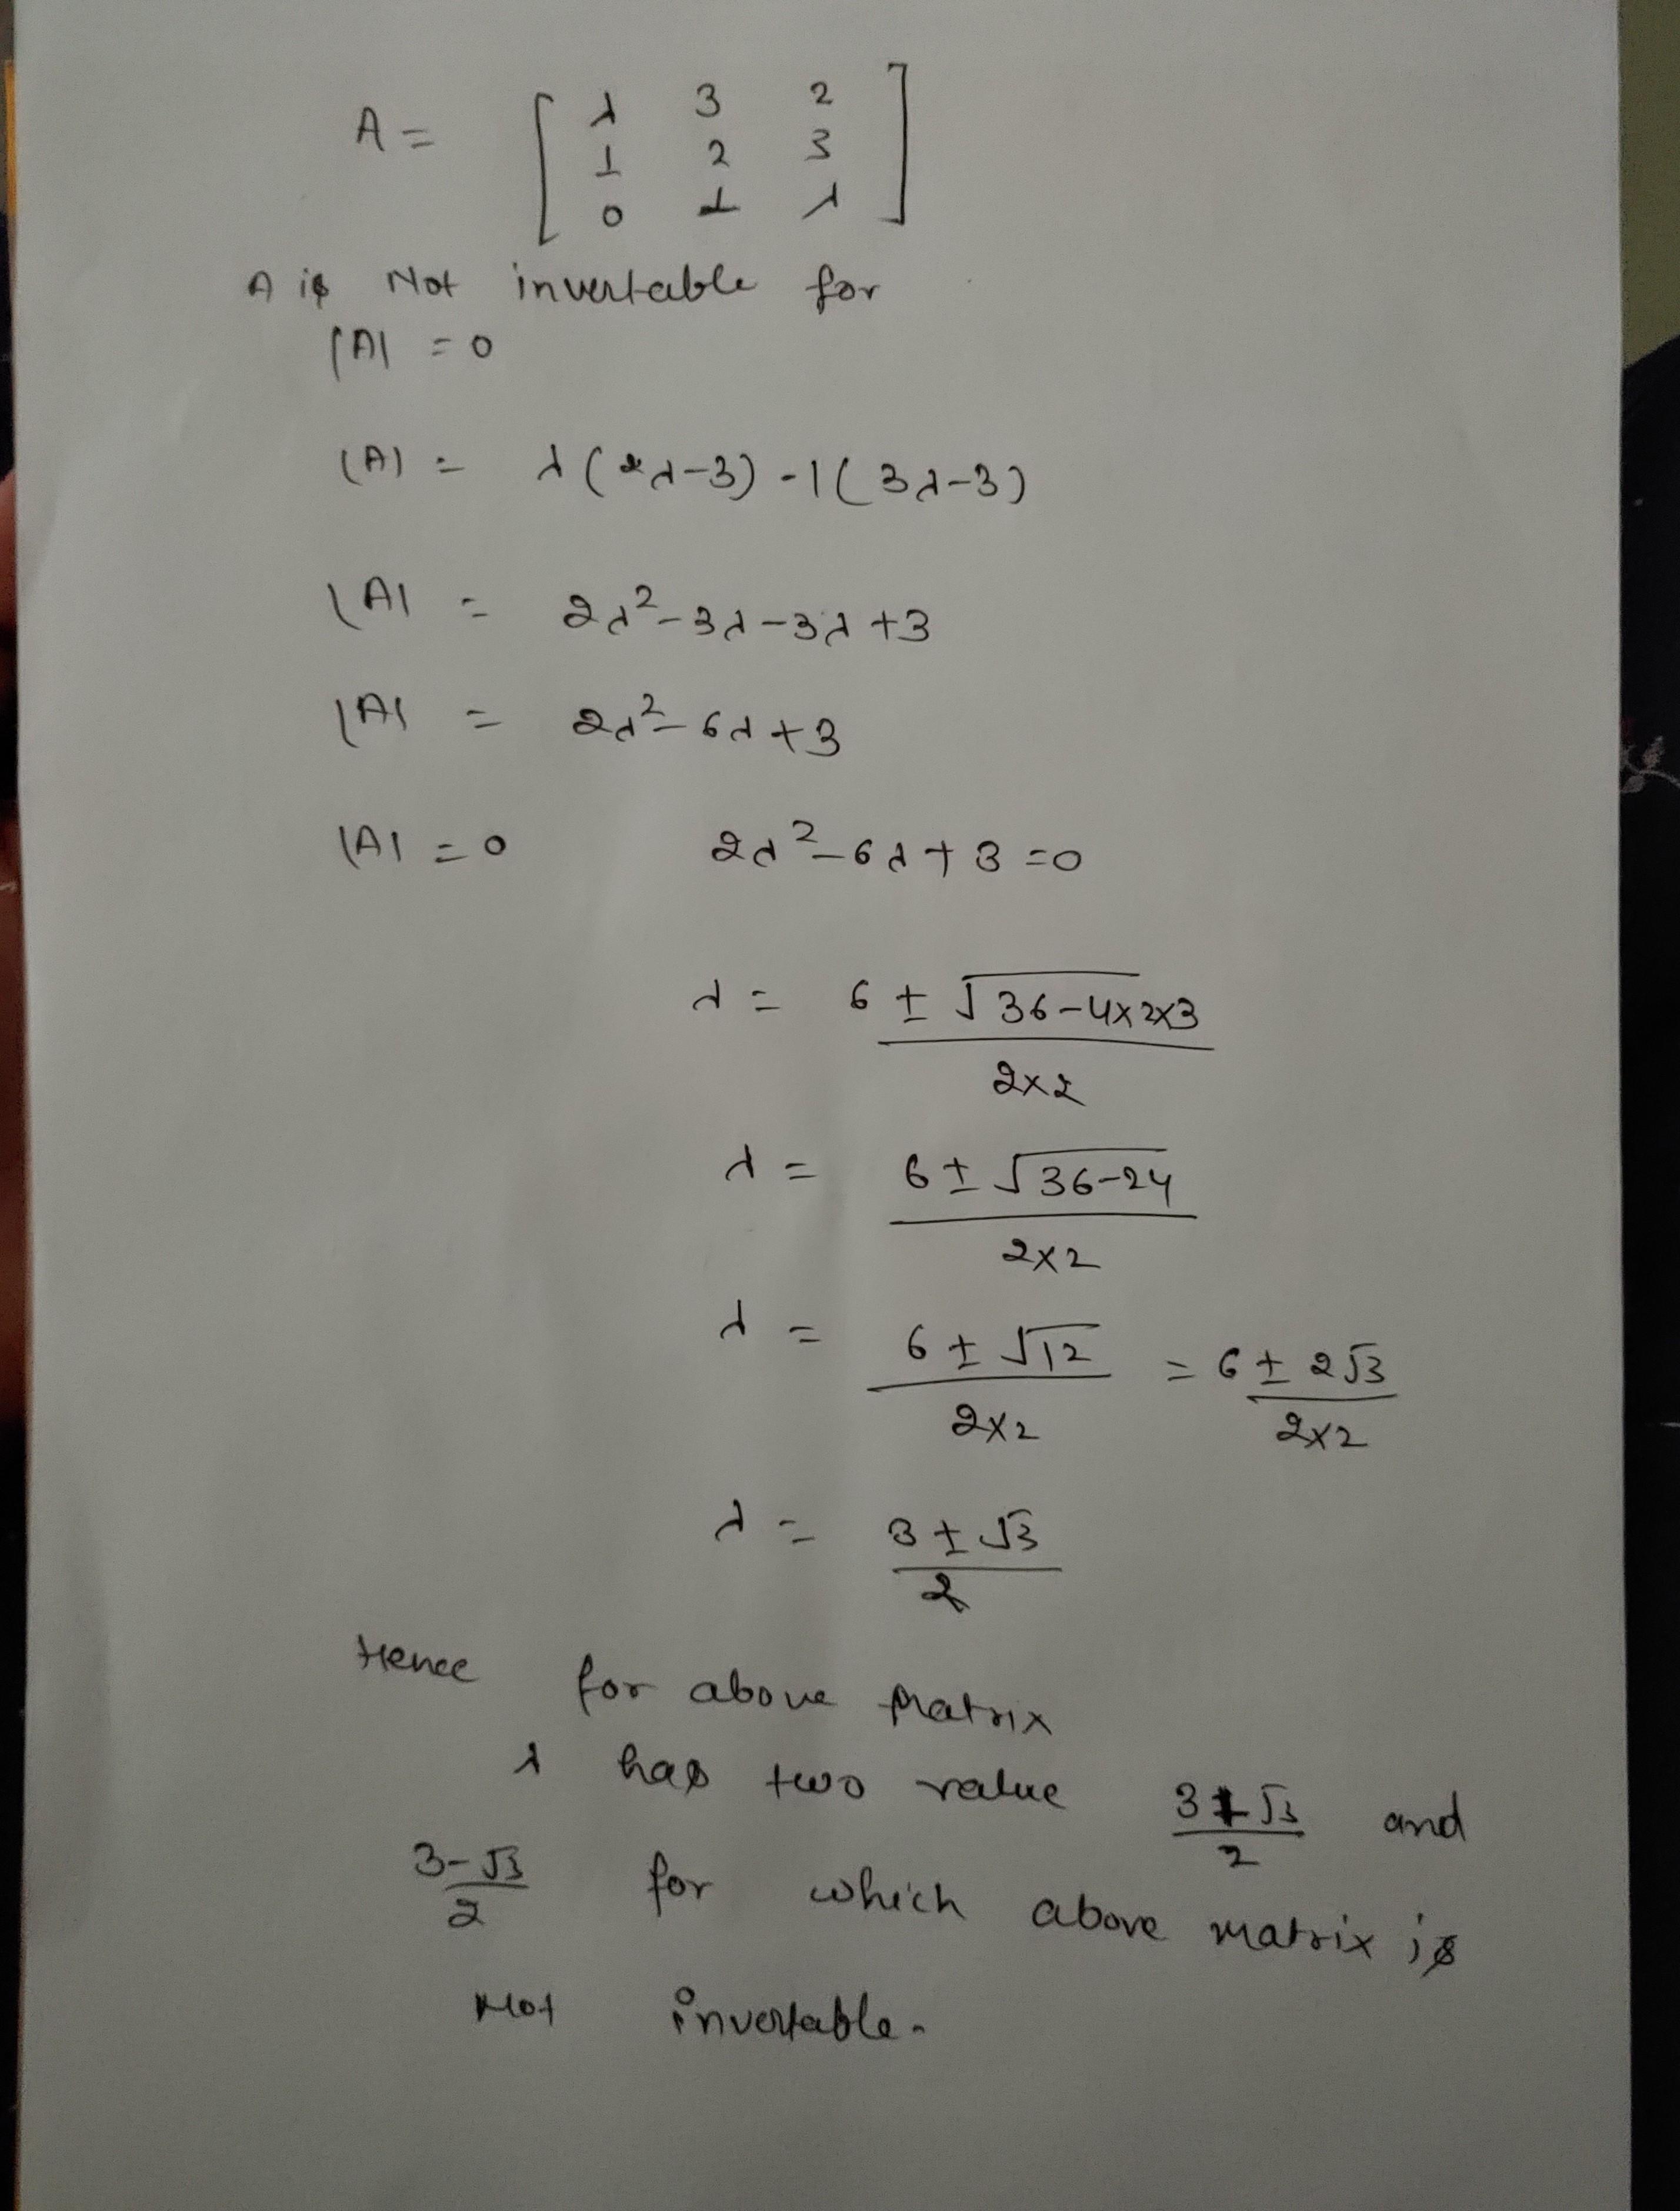 A = [ λ 3 2
1 2 3
0 1 λ ]
A is Not invertable for
|A| = 0
|A| = λ(2λ-3) -1(3λ-3)
|A| = 2λ²-3λ-3λ+3
|A| = 2λ²-6λ+3
|A| = 0 2λ²-6λ+3=0
λ = 6 ± √36-4x2x3 / 2x2
λ = 6 ± √36-24 / 2x2
λ = 6 ± √12 / 2x2 = 6 ± 2√3 / 2x2
λ = 3 ± √3 / 2
Hence for above Matrix
λ has two value 3+√3 / 2 and
3-√3 / 2 for which above matrix is
Not invertable.